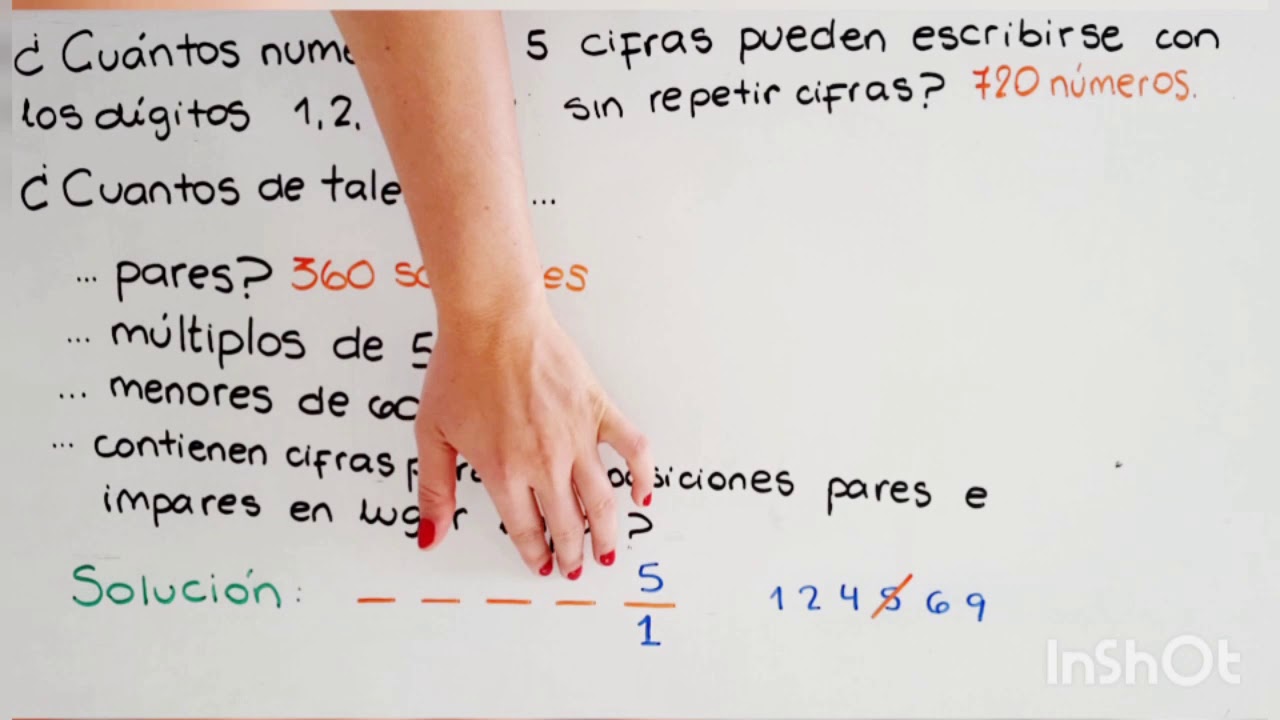 ¿Cuántos 5 cifras pueden escribirse con
los dígitos 1,2, sin repetir cifras? 720 números.
¿Cuantos de ...
... pares? 360
... múltiplos de 5
... menores de
... contienen cifras posiciones pares e
impares en ?
Solución: _ _ _ _ 5 1 2 4 5 6 9
1
InShOt